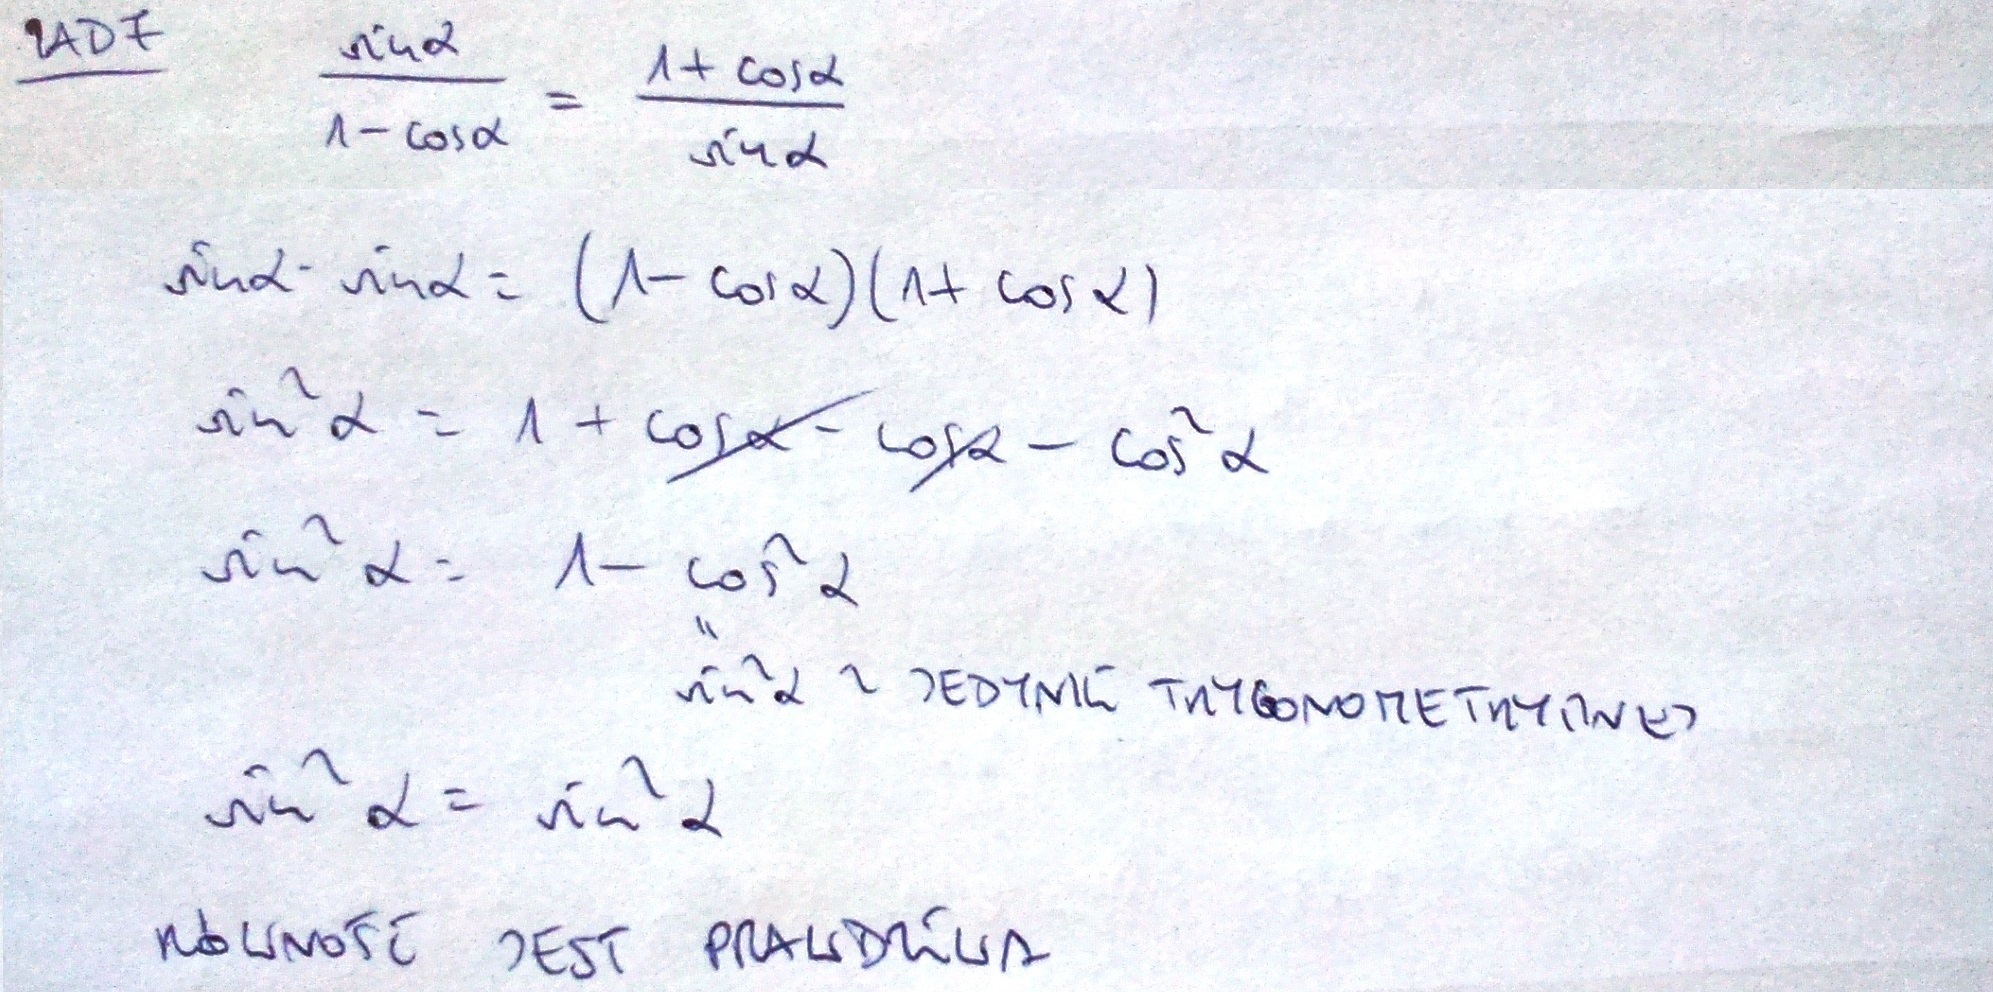 ZAD 7
sinα / 1 - cosα = 1 + cosα / sinα
sinα · sinα = (1 - cosα)(1 + cosα)
sin²α = 1 + cosα - cosα - cos²α
sin²α = 1 - cos²α
"
sin²α z JEDYNKI TRYGONOMETRYCZNEJ
sin²α = sin²α
RÓWNOŚĆ JEST PRAWDZIWA